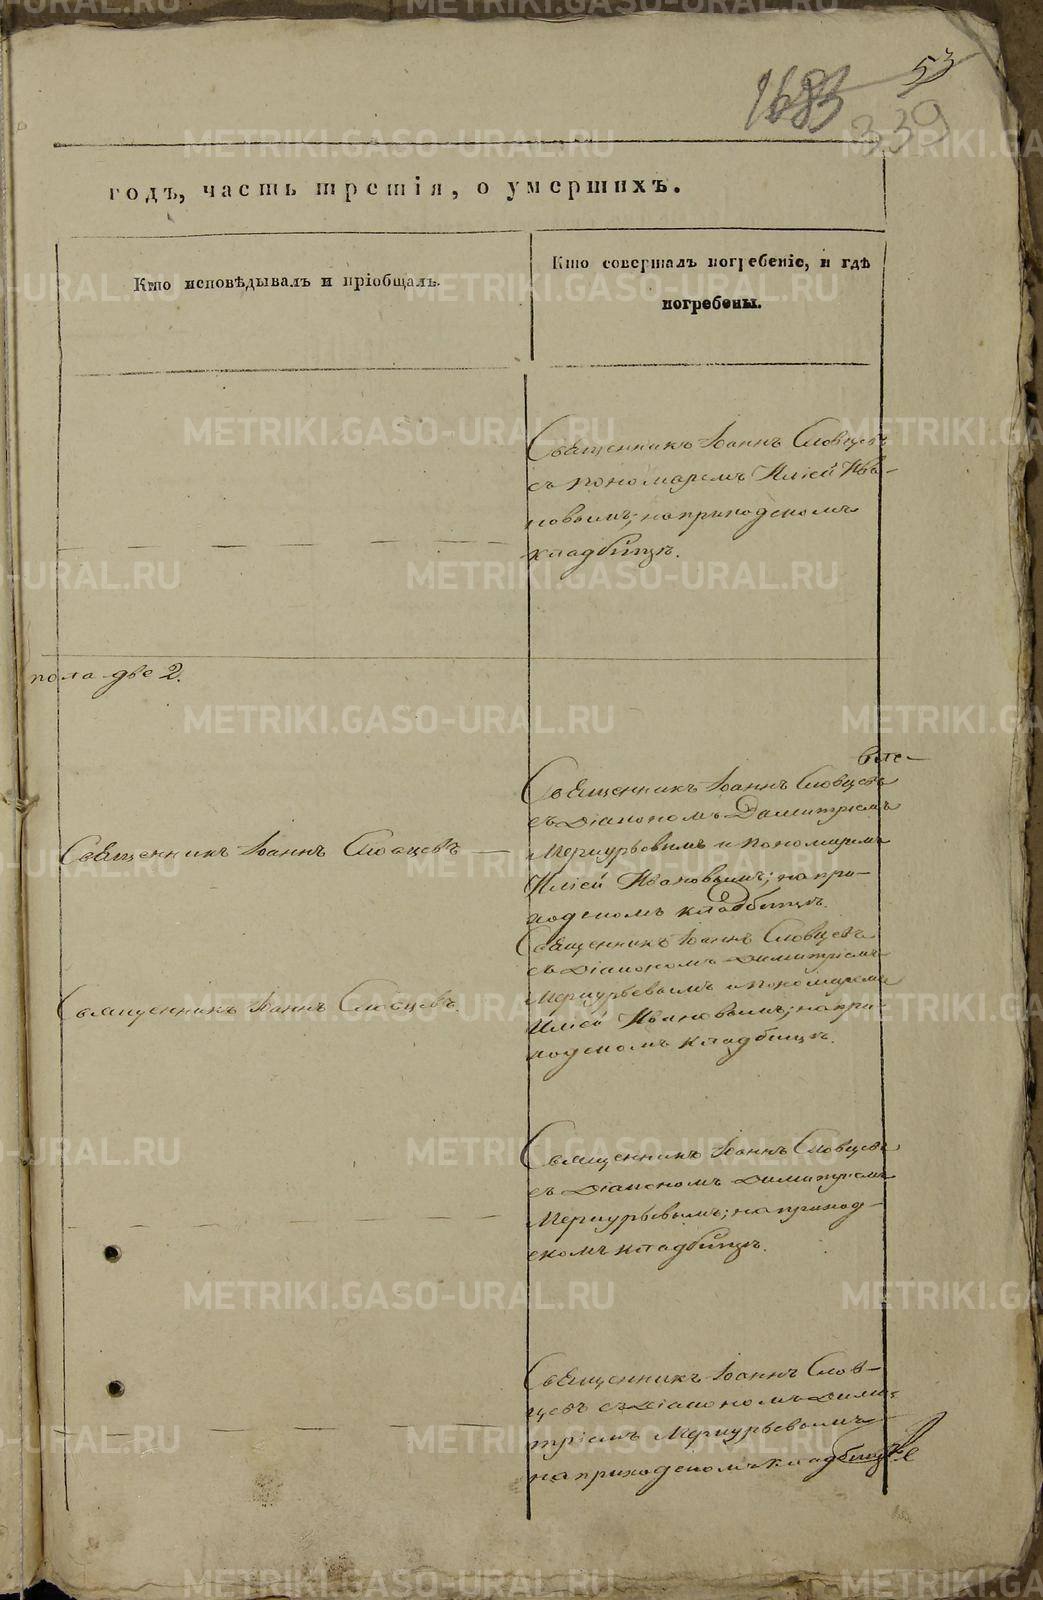 53
1683
339
годъ, часть третія, о умершихъ.
Кто исповѣдывалъ и пріобщалъ.
Кто совершалъ погребеніе, и гдѣ
погребены.
Священникъ Іоаннъ Словцевъ
съ пономаремъ Иліей Ива-
новымъ; на приходскомъ
кладбищѣ.
пола две 2.
Священникъ Іоаннъ Словцевъ
съ Діакономъ Димитріемъ
Меркурьевымъ и пономаремъ
Иліей Ивановымъ; на при-
ходскомъ кладбищѣ.
Священникъ Іоаннъ Словцевъ
Священникъ Іоаннъ Словцевъ
съ Діакономъ Димитріемъ
Меркурьевымъ и пономаремъ
Иліей Ивановымъ; на при-
ходскомъ кладбищѣ.
Священникъ Іоаннъ Словцевъ.
Священникъ Іоаннъ Словцевъ
съ Діакономъ Димитріемъ
Меркурьевымъ; на приход-
скомъ кладбищѣ.
Священникъ Іоаннъ Слов-
цевъ съ Діакономъ Дими-
тріемъ Меркурьевымъ
на приходскомъ кладбище
METRIKI.GASO-URAL.RU